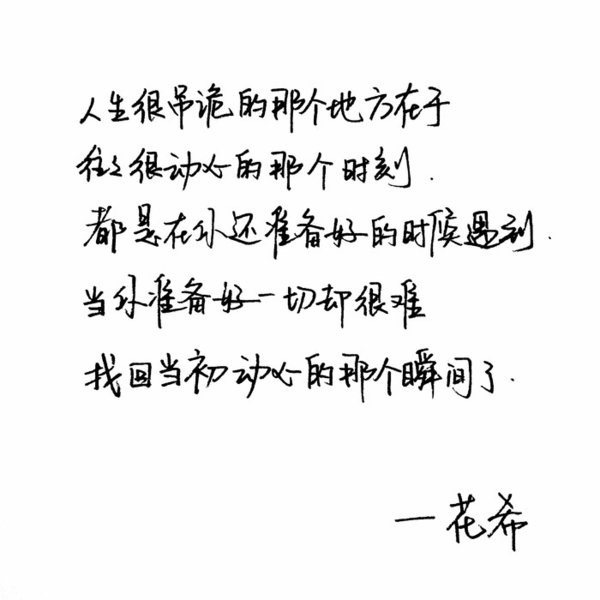 人生很吊诡的那个地方在于
往往很动心的那个时刻.
都是在你还准备好的时候遇到.
当你准备好一切却很难
找回当初动心的那个瞬间了.
一花希